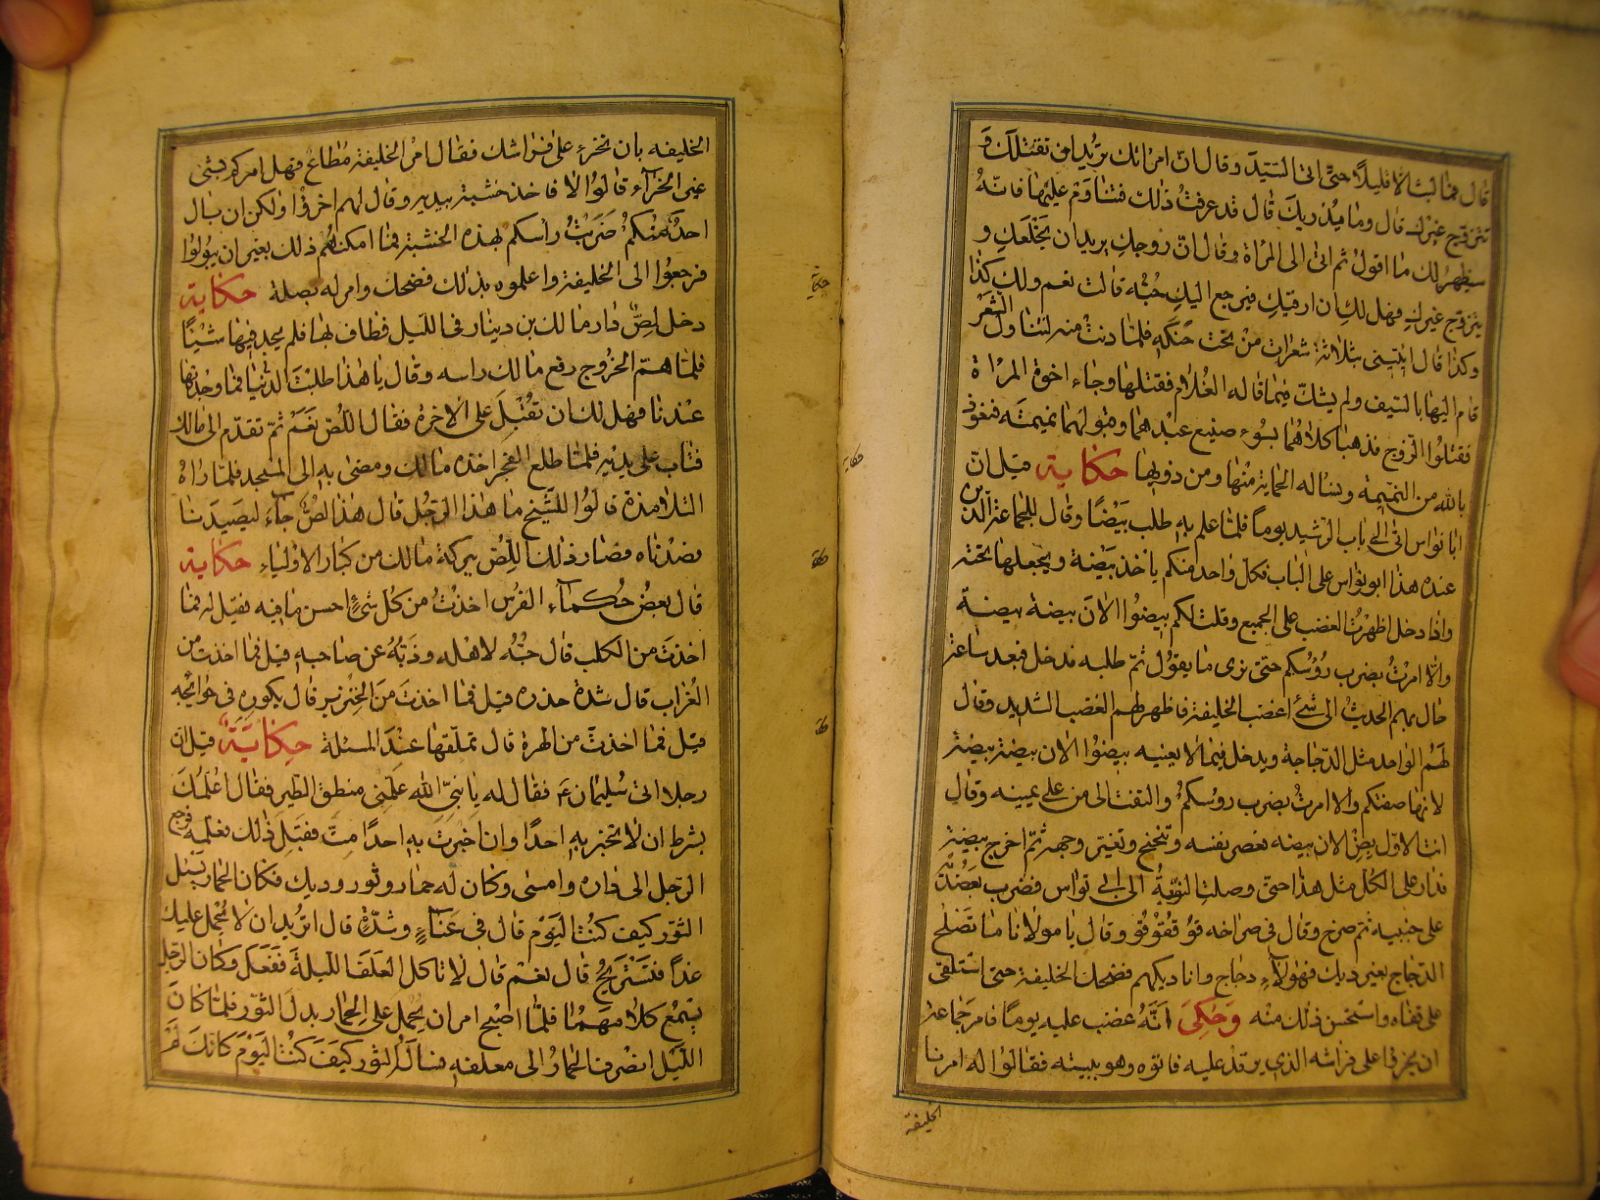 قال فما لبثا الا قليلاً حتى اتى السيد وقال ان امراتك تريد ان تقتلك و
تتزوج غيرك قال وما يدريك قال قد عرفتُ ذلك فتناوم عليها فانهُ
سيظهر لك ما اقولُ ثم اتى الى المراة وقال ان زوجكِ يريد ان يخلعكِ و
يتزوج غيركِ فهل لكِ ان ارقيكِ فيرجع اليكِ حُبّه قالت نعم ولك كذا
وكذا قال ايتيني بثلاثة شعرات من تحت حنكه فلما دنت منه لتناول الشعر
قام اليها بالسيف ولم يشك فيما قاله الغلام فقتلها وجاء اخوة المراة
فقتلوا الزوج فذهبا كلاهما بسوء صنيع عبدهما وقبولهما نميمته فنعوذ
بالله من النميمة ونساله الحماية منها ومن ذويها حكاية قيل ان
ابا نواس اتى الى باب الرشيد يوماً فلما علم به طلب بيضًا وقال للجماعة الذين
عنده هذا ابو نواس على الباب فكل واحد منكم ياخذ بيضة ويجعلها تحته
واذا دخل اظهرتُ الغضب على الجميع وقلت لكم بيضوا الان بيضة بيضة
والا امرتُ بضرب رؤسكم حتى نرى ما يقول ثم طلبه فدخل فبعد ساعة
طال بهم الحديث الى شئ اغضب الخليفة فاظهر لهم الغضب الشديد وقال
لهم الواحد مثل الدجاجة ويدخل فيما لا يعنيه بيضوا الان بيضة بيضة
لانها صفتكم والا امرتُ بضرب روسكم والتفت الى من على يمينه وقال
انت الاول بِض الان بيضه فعصر نفسه وتنحنح وتغير وجهه ثم اخرج بيضة
فدار على الكل مثل هذا حتى وصلت النوبة الى ابي نواس فضرب بعضديه
على جنبيه ثم صرخ وقال في صراخه قو قفوقو وقال يا مولانا ما تصلح
الدجاج بغير ديك فهؤلاءِ دجاج وانا ديكهم فضحك الخليفة حتى استلقى
على قفاه واستحسن ذلك منه وَحُكِىَ انَّهُ غضب عليه يوماً فامر جماعة
ان يخرؤا على فراشه الذي يرقد عليه فاتوه وهو ببيته فقالوا له امرنا
الخليفة
الخليفه بان نخرء على فراشك فقال امر الخليفة مُطاع فهل امركم بشئ
غير الخراء قالوا لا فاخذ خشبة بيديه وقال لهم اخرؤا ولكن ان بال
احدٌ منكم ضربتُ راسكم بهذه الخشبة فما امكنهم ذلك بغير ان يبولوا
فرجعوا الى الخليفة واعلموه بذلك فضحك وامر له بصلة حكاية
دخل لصٌّ دار مالك بن دينار في الليل فطاف بها فلم يجد فيها شيئًا
فلما همّ الخروج رفع مالك راسه وقال يا هذا طلبت الدنيا فما وجدتها
عندنا فهل لك ان تُقبل على الاخرة فقال اللص نعم ثم تقدم الى مالك
فتاب على يديه فلما طلع الفجر اخذه مالك ومضى به الى المسجد فلما راه
التلامذة قالوا للشيخ ما هذا الرجل قال هذا لصٌّ جاء ليصيدنا
فصدناه فصار ذلك اللص ببركة مالك من كبار الاولياء حكاية
قال بعض حكماء الفرس اخذتُ من كل شئٍ احسن ما فيه فقيل له فما
اخذت من الكلب قال حبّه لاهله وذبّه عن صاحبه قيل فما اخذت من
الغراب قال شدة حذره قيل فما اخذت من الخنزير قال بكوره في حوائجه
قيل فما اخذت من الهرة قال تملقها عند المسئلة حكاية قيل ان
رجلا اتى سليمان ع فقال له يا نبي الله علمني منطق الطير فقال اعلمك
بشرط ان لا تخبر به احدًا وان اخبرت به احدًا متّ فقبل ذلك فعلمه فرجع
الرجل الى داره وامسى وكان له حمار وثور وديك فكان الحمار يسئل
الثور كيف كنت اليوم قال في عناءٍ وشدةٍ قال اتريد ان لا تحمل عليك
غداً فتستريح قال نعم قال لا تاكل العلف الليلة ففعل وكان الرجل
يسمع كلامهما فلما اصبح امر ان يحمل على الحمار بدل الثور فلما كان
الليل انصرف الحمار الى معلفه فساله الثور كيف كنت اليوم كانك لم
حكاية
حكاية